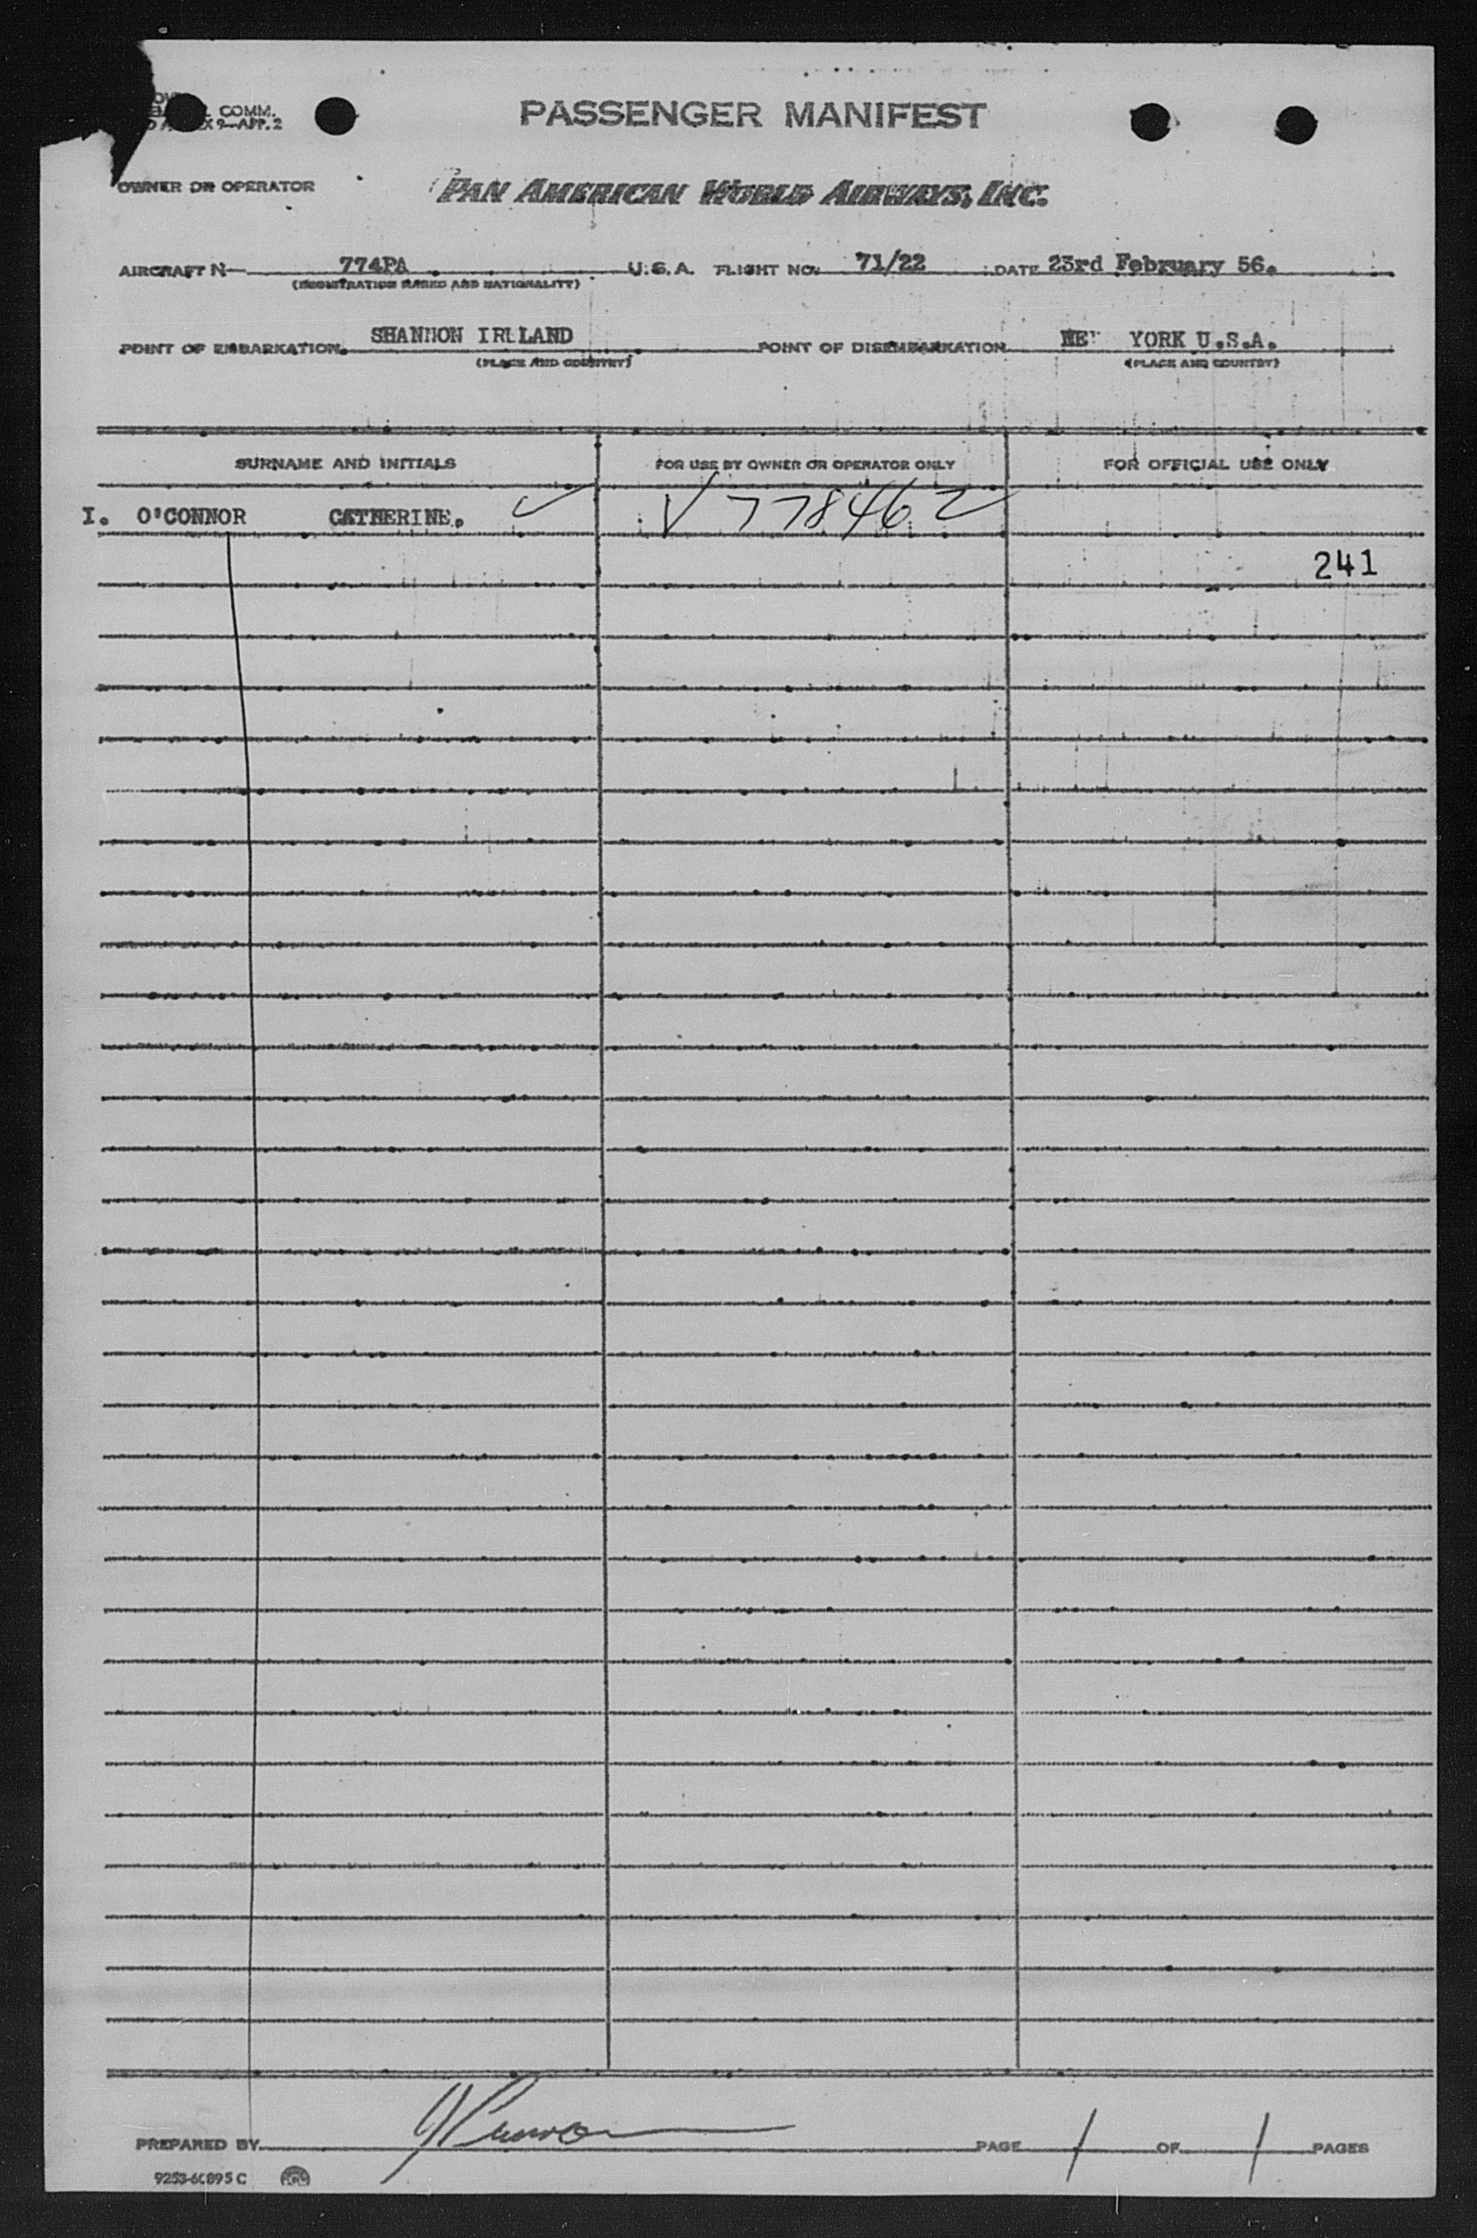 COMM.
9-APP. 2
PASSENGER MANIFEST
OWNER OR OPERATOR PAN AMERICAN WORLD AIRWAYS, INC.
AIRCRAFT N— 774PA U.S.A. FLIGHT NO. 71/22 DATE 23rd February 56.
(REGISTRATION MARKS AND NATIONALITY)
POINT OF EMBARKATION SHANNON IRLLAND POINT OF DISEMBARKATION NE YORK U.S.A.
(PLACE AND COUNTRY) (PLACE AND COUNTRY)
SURNAME AND INITIALS FOR USE BY OWNER OR OPERATOR ONLY FOR OFFICIAL USE ONLY
I. O'CONNOR CATHERINE. ✓ V 778462
241
PREPARED BY PAGE 1 OF 1 PAGES
9253-60895 C